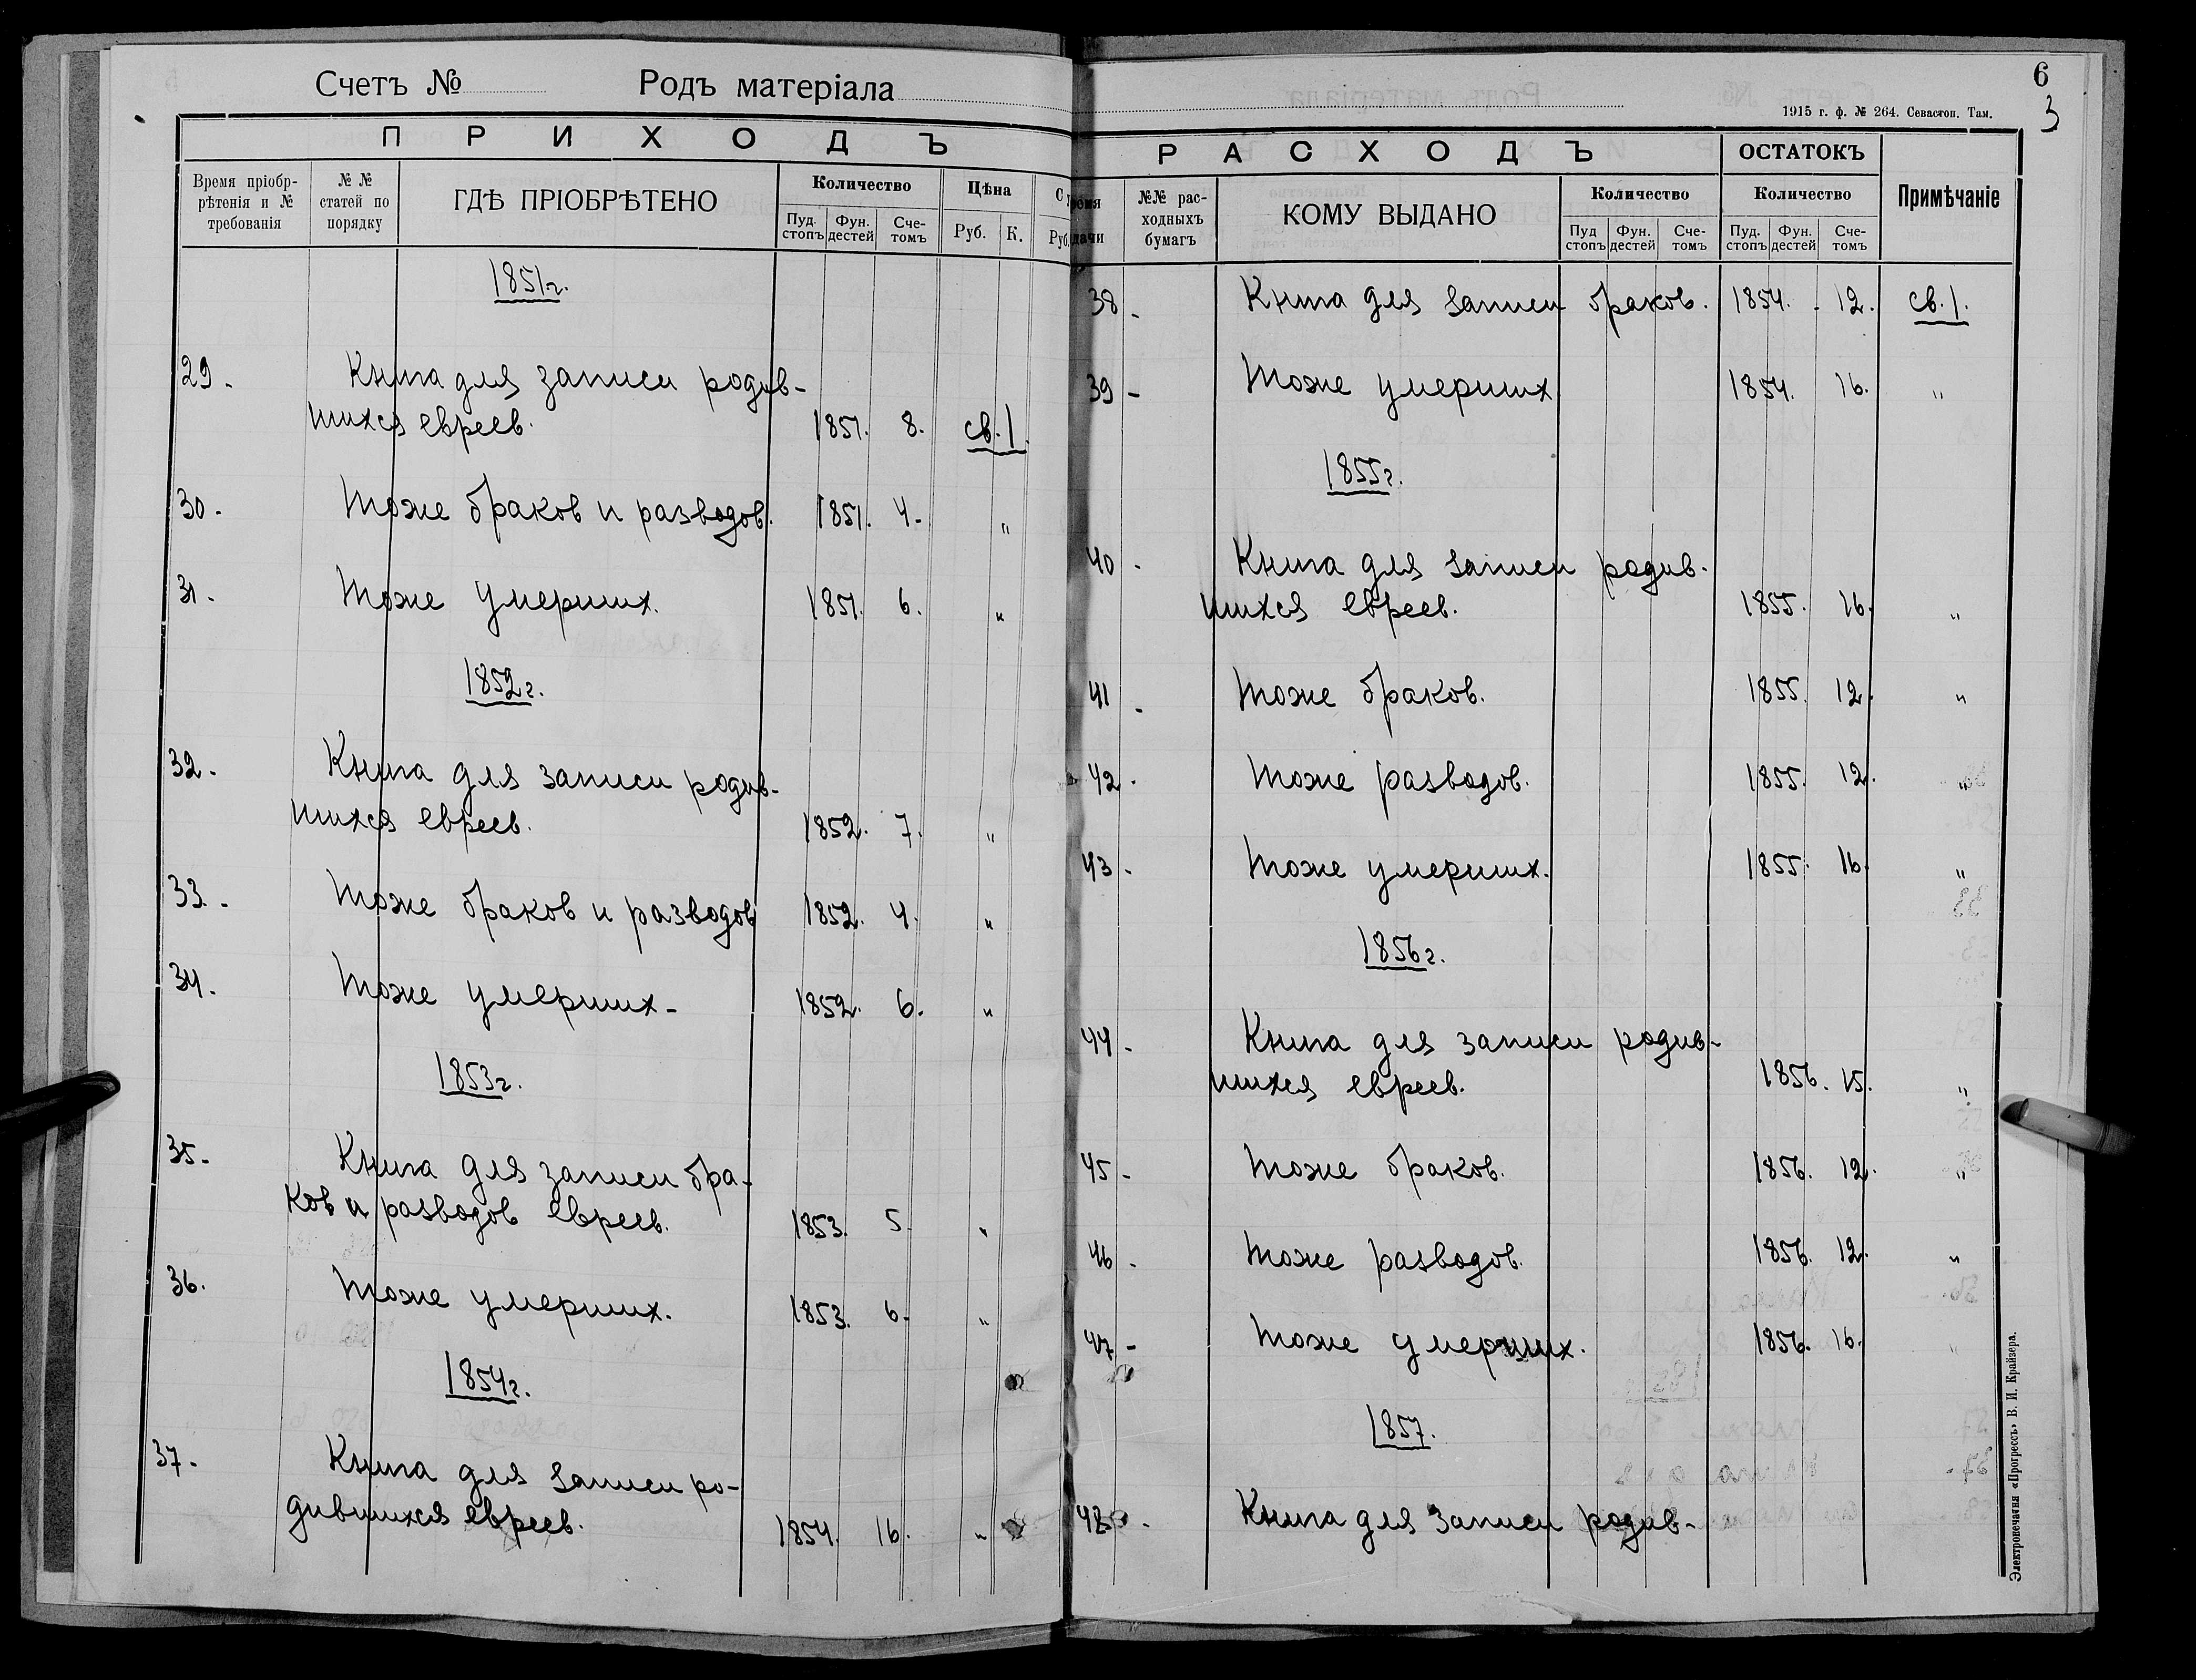 Счетъ № Родъ матеріала
П Р И Х О Д Ъ
Время пріобр-
рѣтенія и №
требованія
№ №
статей по
порядку
ГДѢ ПРІОБРѢТЕНО
Количество
Пуд.
стопъ
Фун.
дестей
Сче-
томъ
Цѣна
Руб. К.
Руб.
1851г.
29. Книга для записи родив-
шихся евреев. 1851. 8. св. 1.
30. Тоже браков и разводов. 1851. 4. "
31. Тоже умерших. 1851. 6. "
1852г.
32. Книга для записи родив-
шихся евреев. 1852. 7. "
33. Тоже браков и разводов 1852. 4. "
34. Тоже умерших - 1852. 6. "
1853г.
35. Книга для записи бра-
ков и разводов евреев. 1853. 5. "
36. Тоже умерших. 1853. 6. "
1854г.
37. Книга для записи ро-
дившихся евреев. 1854. 16. "
6
3
1915 г. ф. № 264. Севастоп. Там.
Р А С Х О Д Ъ
ОСТАТОКЪ
Примѣчаніе
№№ рас-
ходныхъ
бумагъ
КОМУ ВЫДАНО
Количество
Пуд
стопъ
Фун.
дестей
Сче-
томъ
Количество
Пуд.
стопъ
Фун.
дестей
Сче-
томъ
38. Книга для записи браков. 1854. 12. св. 1.
39 - Тоже умерших 1854. 16. "
1855г.
40. Книга для записи родив-
шихся евреев. 1855. 16. "
41. Тоже браков. 1855. 12. "
42. Тоже разводов. 1855. 12. "
43. Тоже умерших. 1855. 16. "
1856г.
44. Книга для записи родив-
шихся евреев. 1856. 15. "
45 - Тоже браков. 1856. 12. "
46. Тоже разводов. 1856. 12. "
47 - Тоже умерших. 1856. 16. "
1857.
48. Книга для записи родив-
Электропечатня «Прогрессъ» В. И. Крайзера.